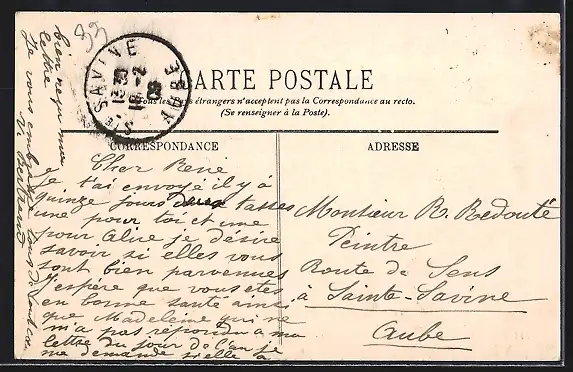 39
STE SAVINE
AUBE
CARTE POSTALE
Tous les pays étrangers n'acceptent pas la Correspondance au recto.
(Se renseigner à la Poste).
CORRESPONDANCE
ADRESSE
Cher René
Je t'ai envoyé il y à
quinze jours deux tasses
une pour toi et une
pour Alice je désire
savoir si elles vous
sont bien parvenues
J'espère que vous etes
en bonne santé ainsi
que Madeleine qui ne
m'a pas répondu a ma
lettre du jour de l'an je
me demande si elle à
bien reçu ma
lettre
Je vous embrasse tous
V. Bertrand
Monsieur R. Redouté
Peintre
Route de Sens
à Sainte-Savine
Aube